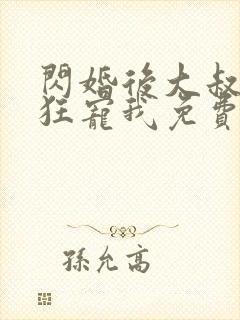 閃婚後大叔
狂寵我免費
孫允高